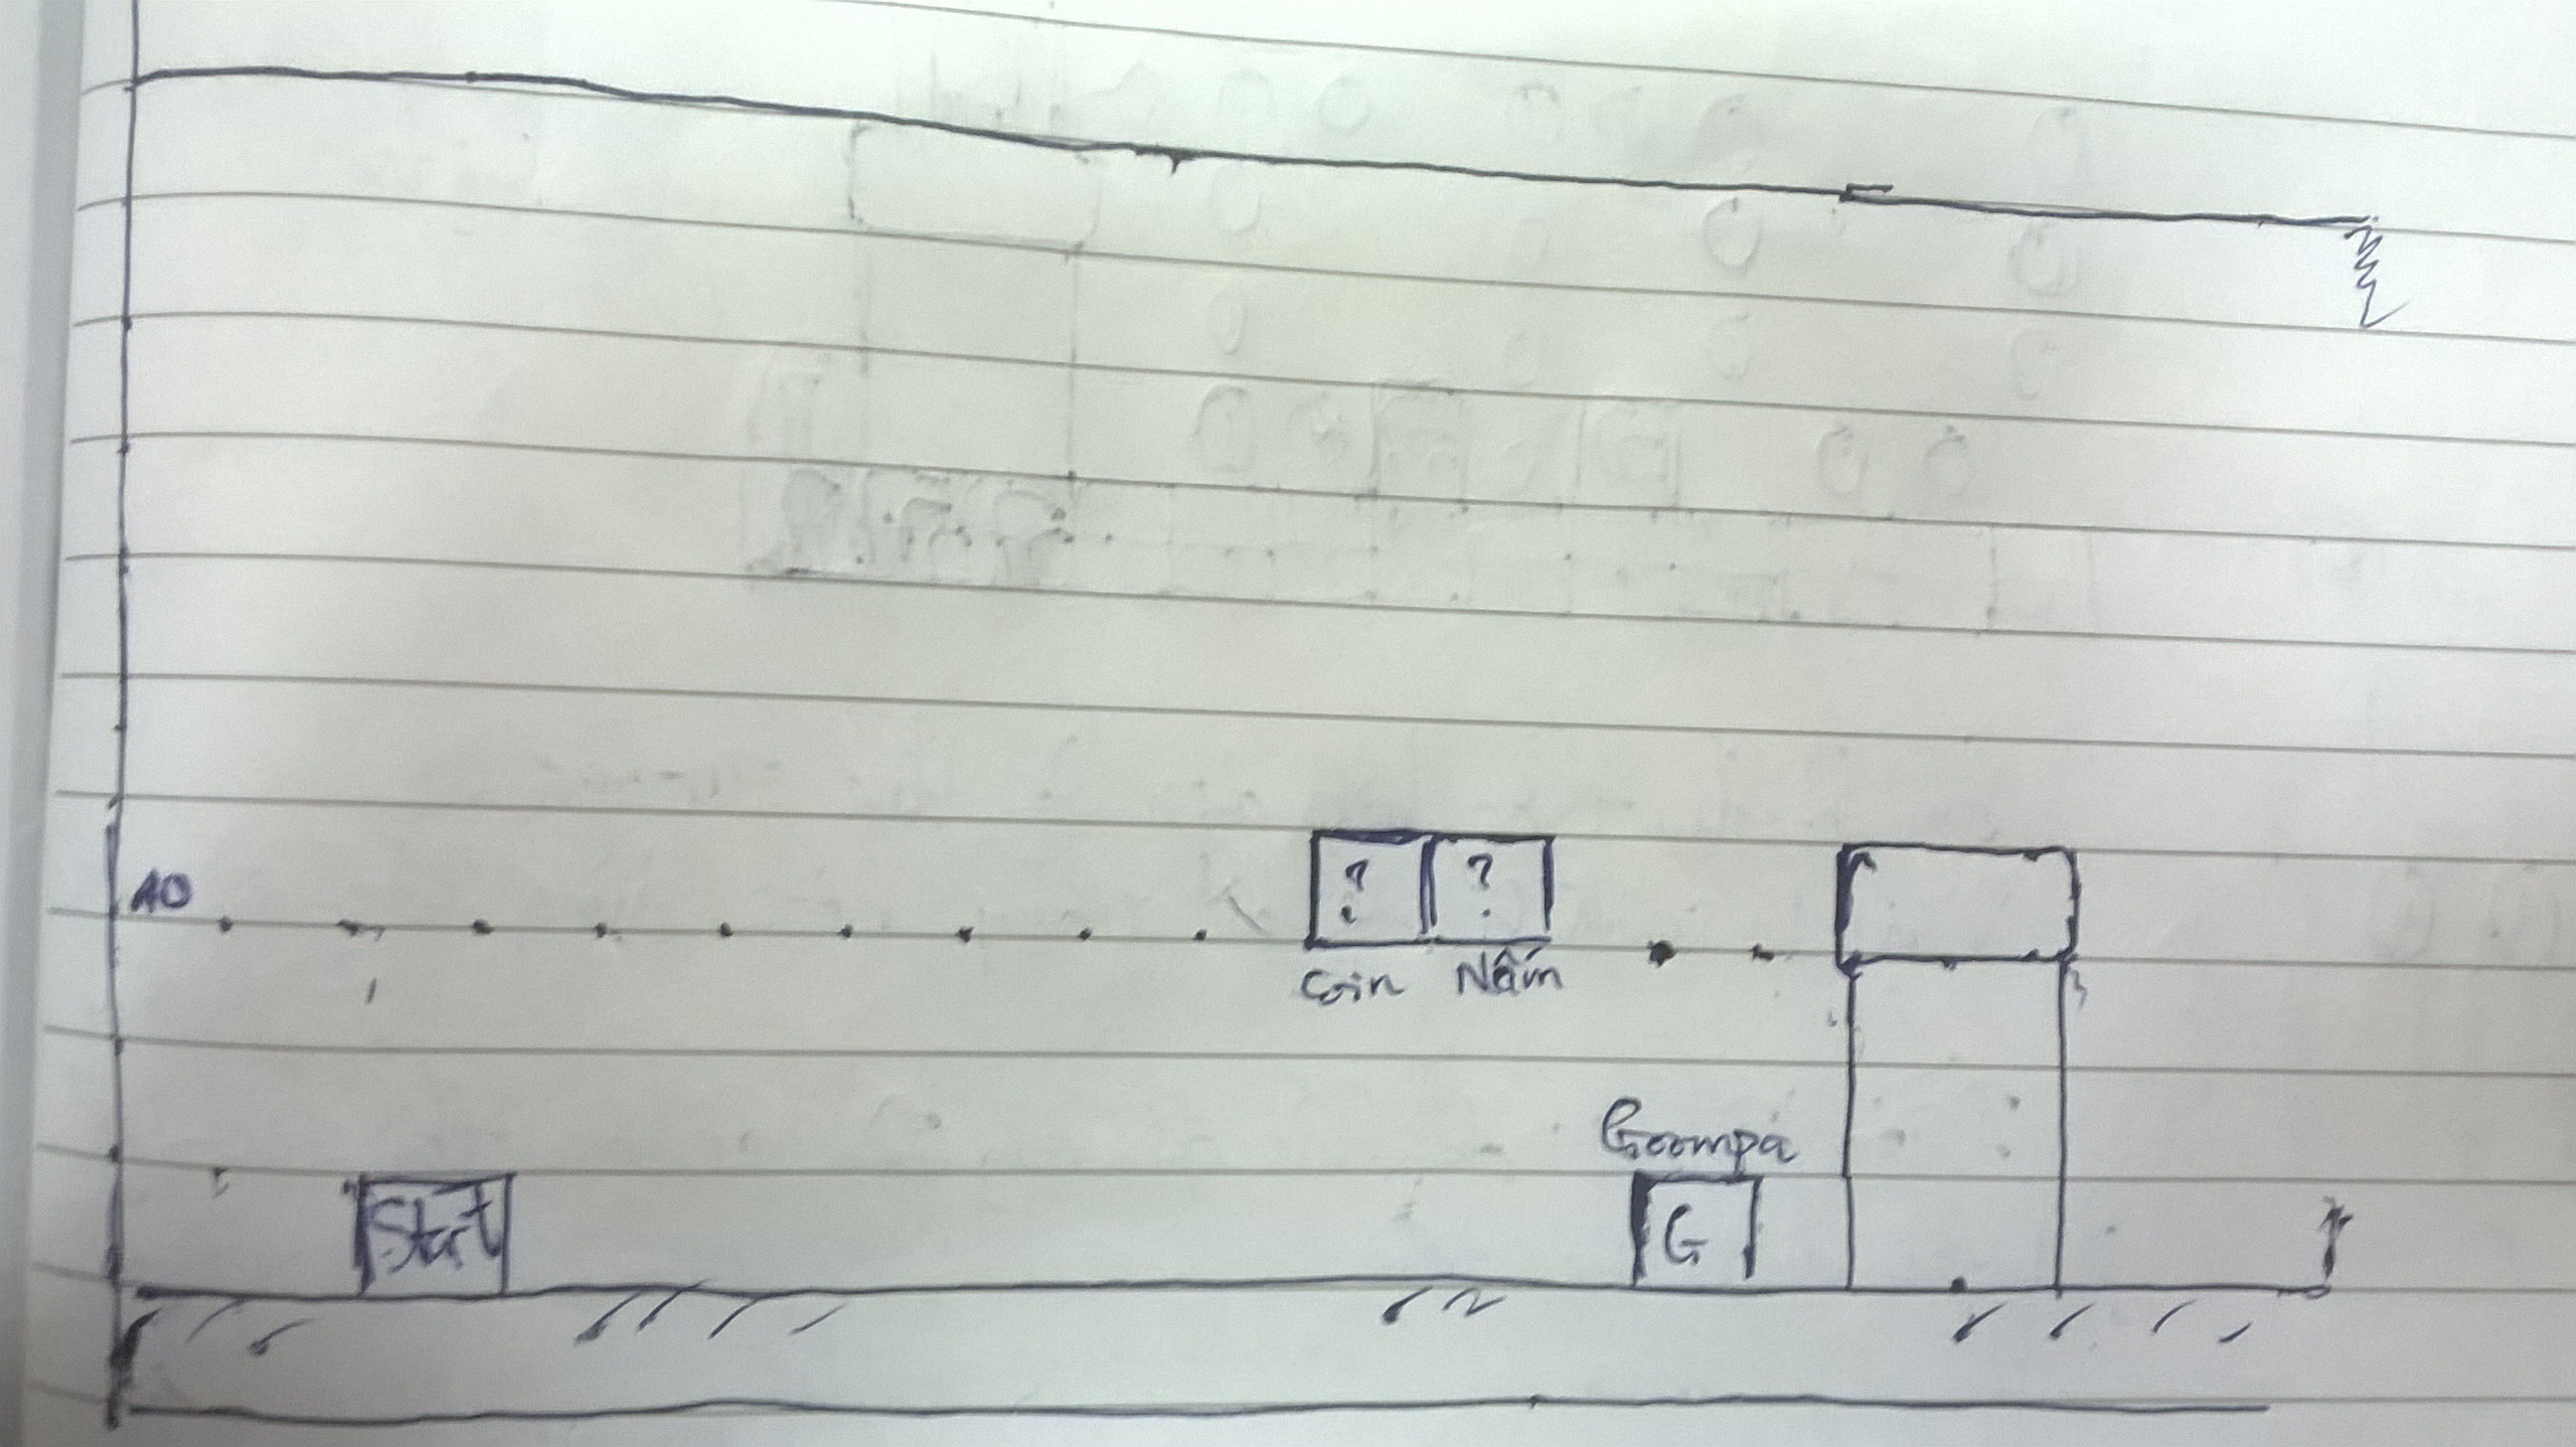 10
? ?
Coin Nấm
Goompa
Start
G